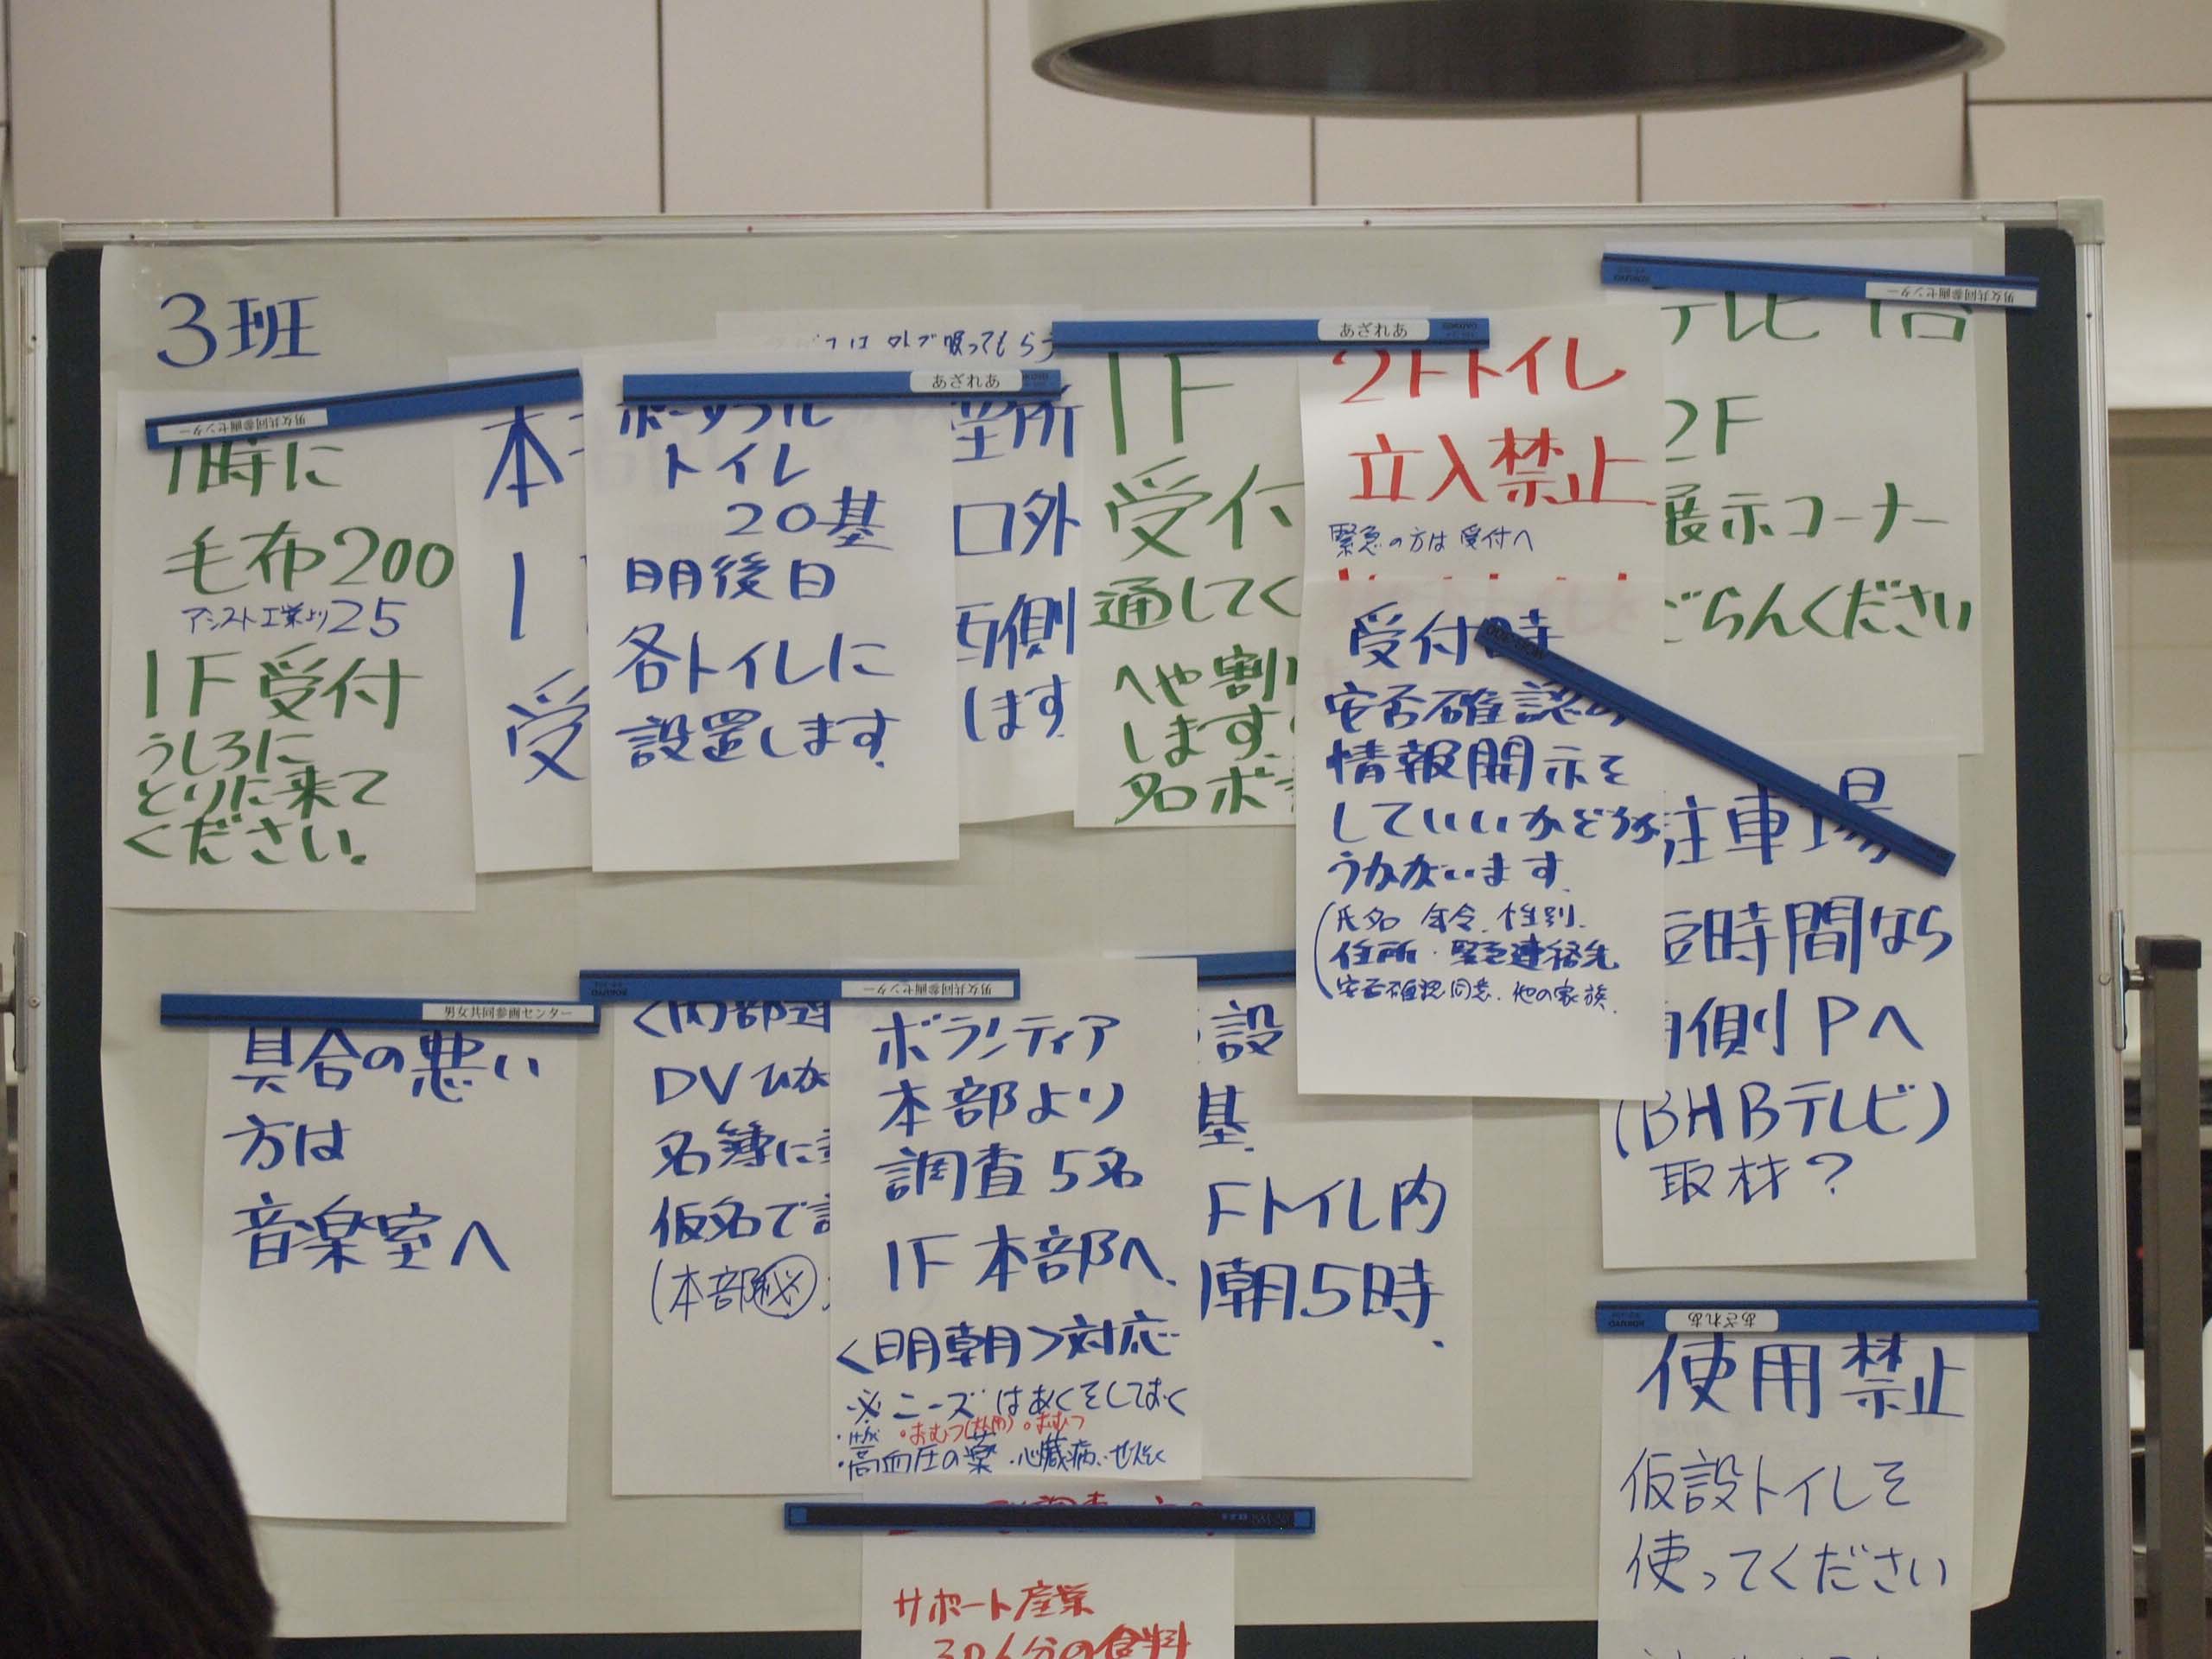 3班
男女共同参画センター
1時に
毛布200
アシスト工業より25
1F受付
うしろに
とりに来て
ください.
本
1
受
あざれあ
ポータブル
トイレ
20基
明後日
各トイレに
設置します.
口外
側
します
あざれあ
1F
受付
通してく
へや割り
します.
2Fトイレ
立入禁止
緊急の方は受付へ
受付時
安否確認の
情報開示を
していいかどうか
うかがいます.
(氏名 年令.性別.
住所・緊急連絡先
安否確認同意.他の家族.
男女共同参画センター
テレビ1台
2F
展示コーナー
ごらんください
駐車場
短時間なら
側Pへ
(BHBテレビ)
取材?
男女共同参画センター
具合の悪い
方は
音楽室へ
男女共同参画センター
<内部
DVひ
名簿に
仮名で
(本部㊙)
ボランティア
本部より
調査5名
1F本部へ.
<明朝>対応
※ニーズはあくをしておく
・高血圧の薬・心臓病・ぜんそく
設
基.
Fトイレ内
朝5時.
サポート産業
30人分の食料
あざれあ
使用禁止
仮設トイレを
使ってください